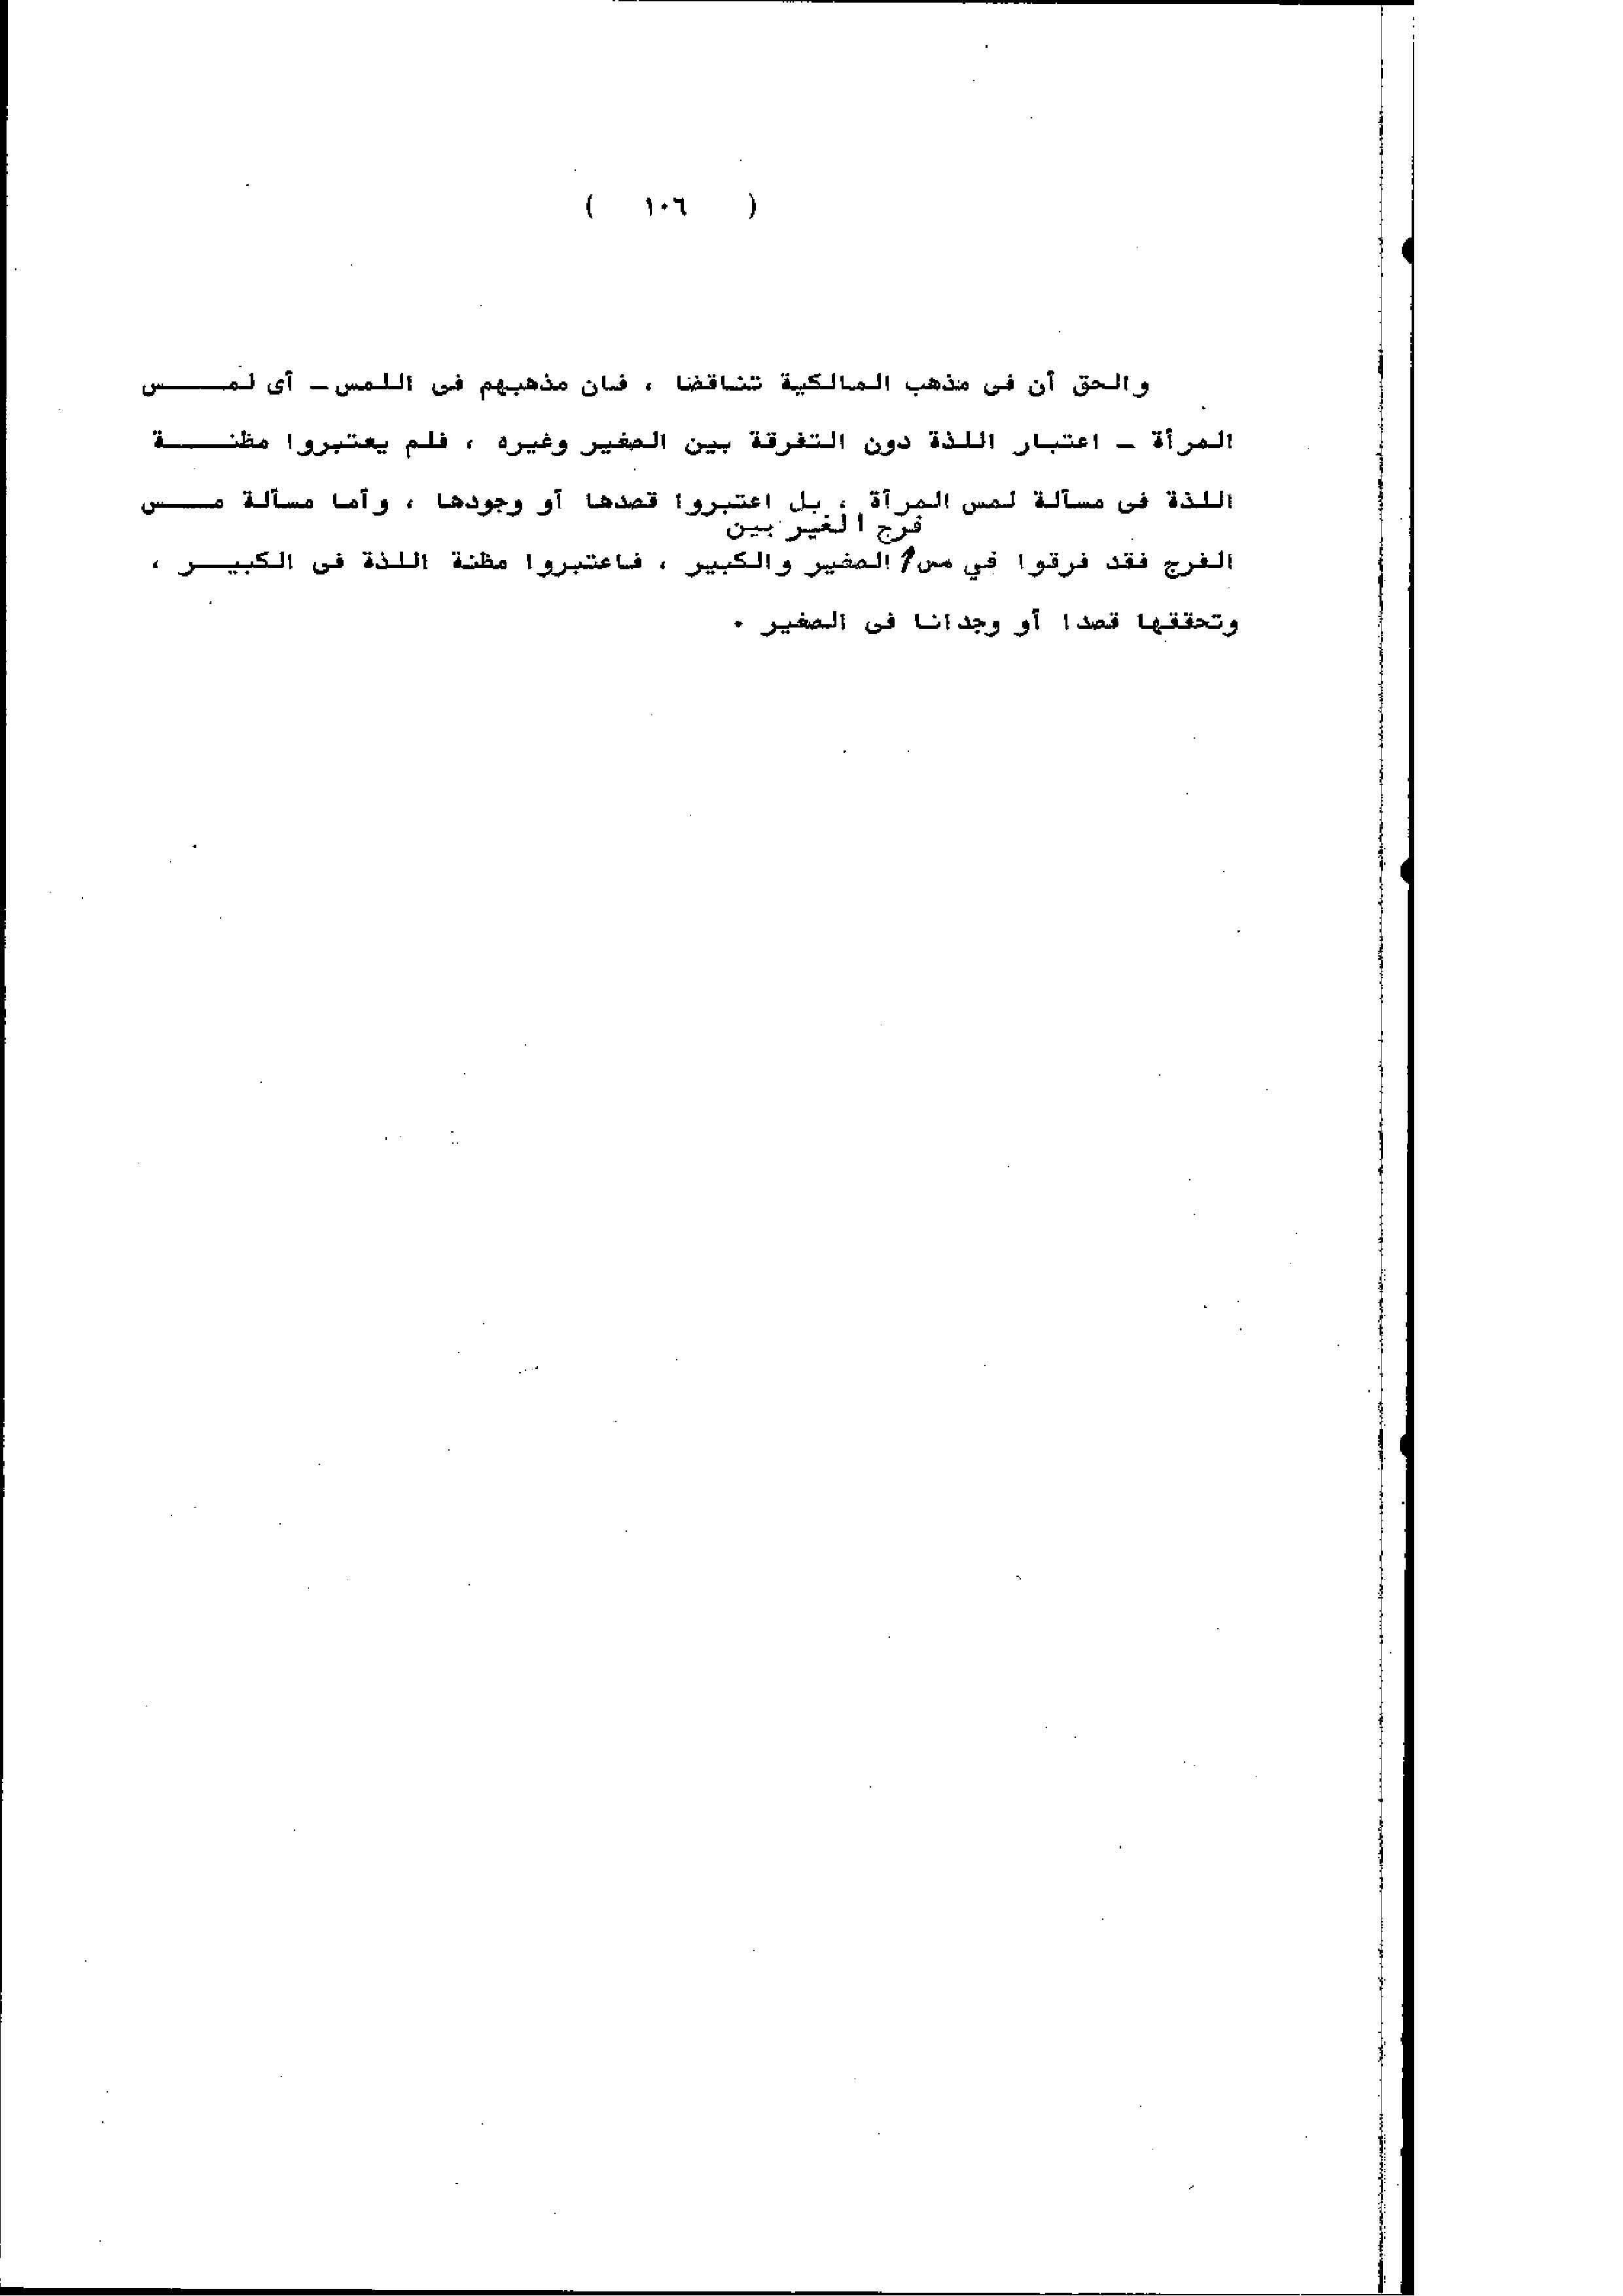 ( ١٠٦ )
والحق أن فى مذهب المالكية تناقضا ، فان مذهبهم فى اللمس - أى لمس
المرأة - اعتبار اللذة دون التفرقة بين الصغير وغيره ، فلم يعتبروا مظنة
اللذة فى مسألة لمس المرأة ، بل اعتبروا قصدها أو وجودها ، وأما مسألة مس
فرج الغير بين
الفرج فقد فرقوا في مس الصغير والكبير ، فاعتبروا مظنة اللذة فى الكبير ،
وتحققها قصدا أو وجدانا فى الصغير .